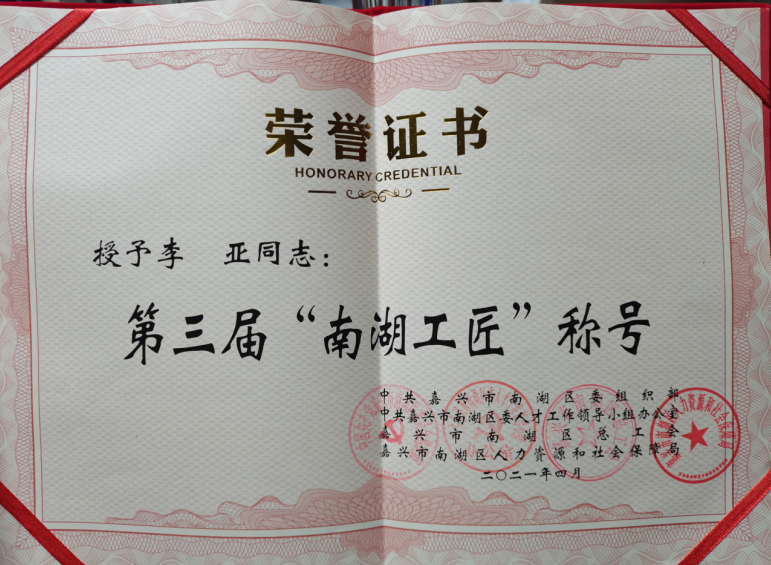 荣誉证书
HONORARY CREDENTIAL
授予李 亚同志：
第三届“南湖工匠”称号
中共嘉兴市南湖区委组织部
中共嘉兴市南湖区委人才工作领导小组办公室
嘉兴市南湖区总工会
嘉兴市南湖区人力资源和社会保障局
二〇二一年四月